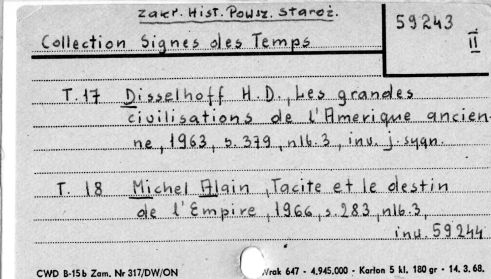 Zakł. Hist. Powsz. Staroż.
59243
II
Collection Signes des Temps
T.17 Disselhoff H.D., Les grandes
civilisations de l'Amerique ancien-
ne, 1963, s. 379, nlb. 3, inv. j. sygn.
T. 18 Michel Alain, Tacite et le destin
de l'Empire, 1966, s. 283, nlb. 3,
inv. 59244
CWD B-15b Zam. Nr 317/DW/ON
Wrak 647 - 4.945.000 - Karton 5 kl. 180 gr - 14. 3. 68.